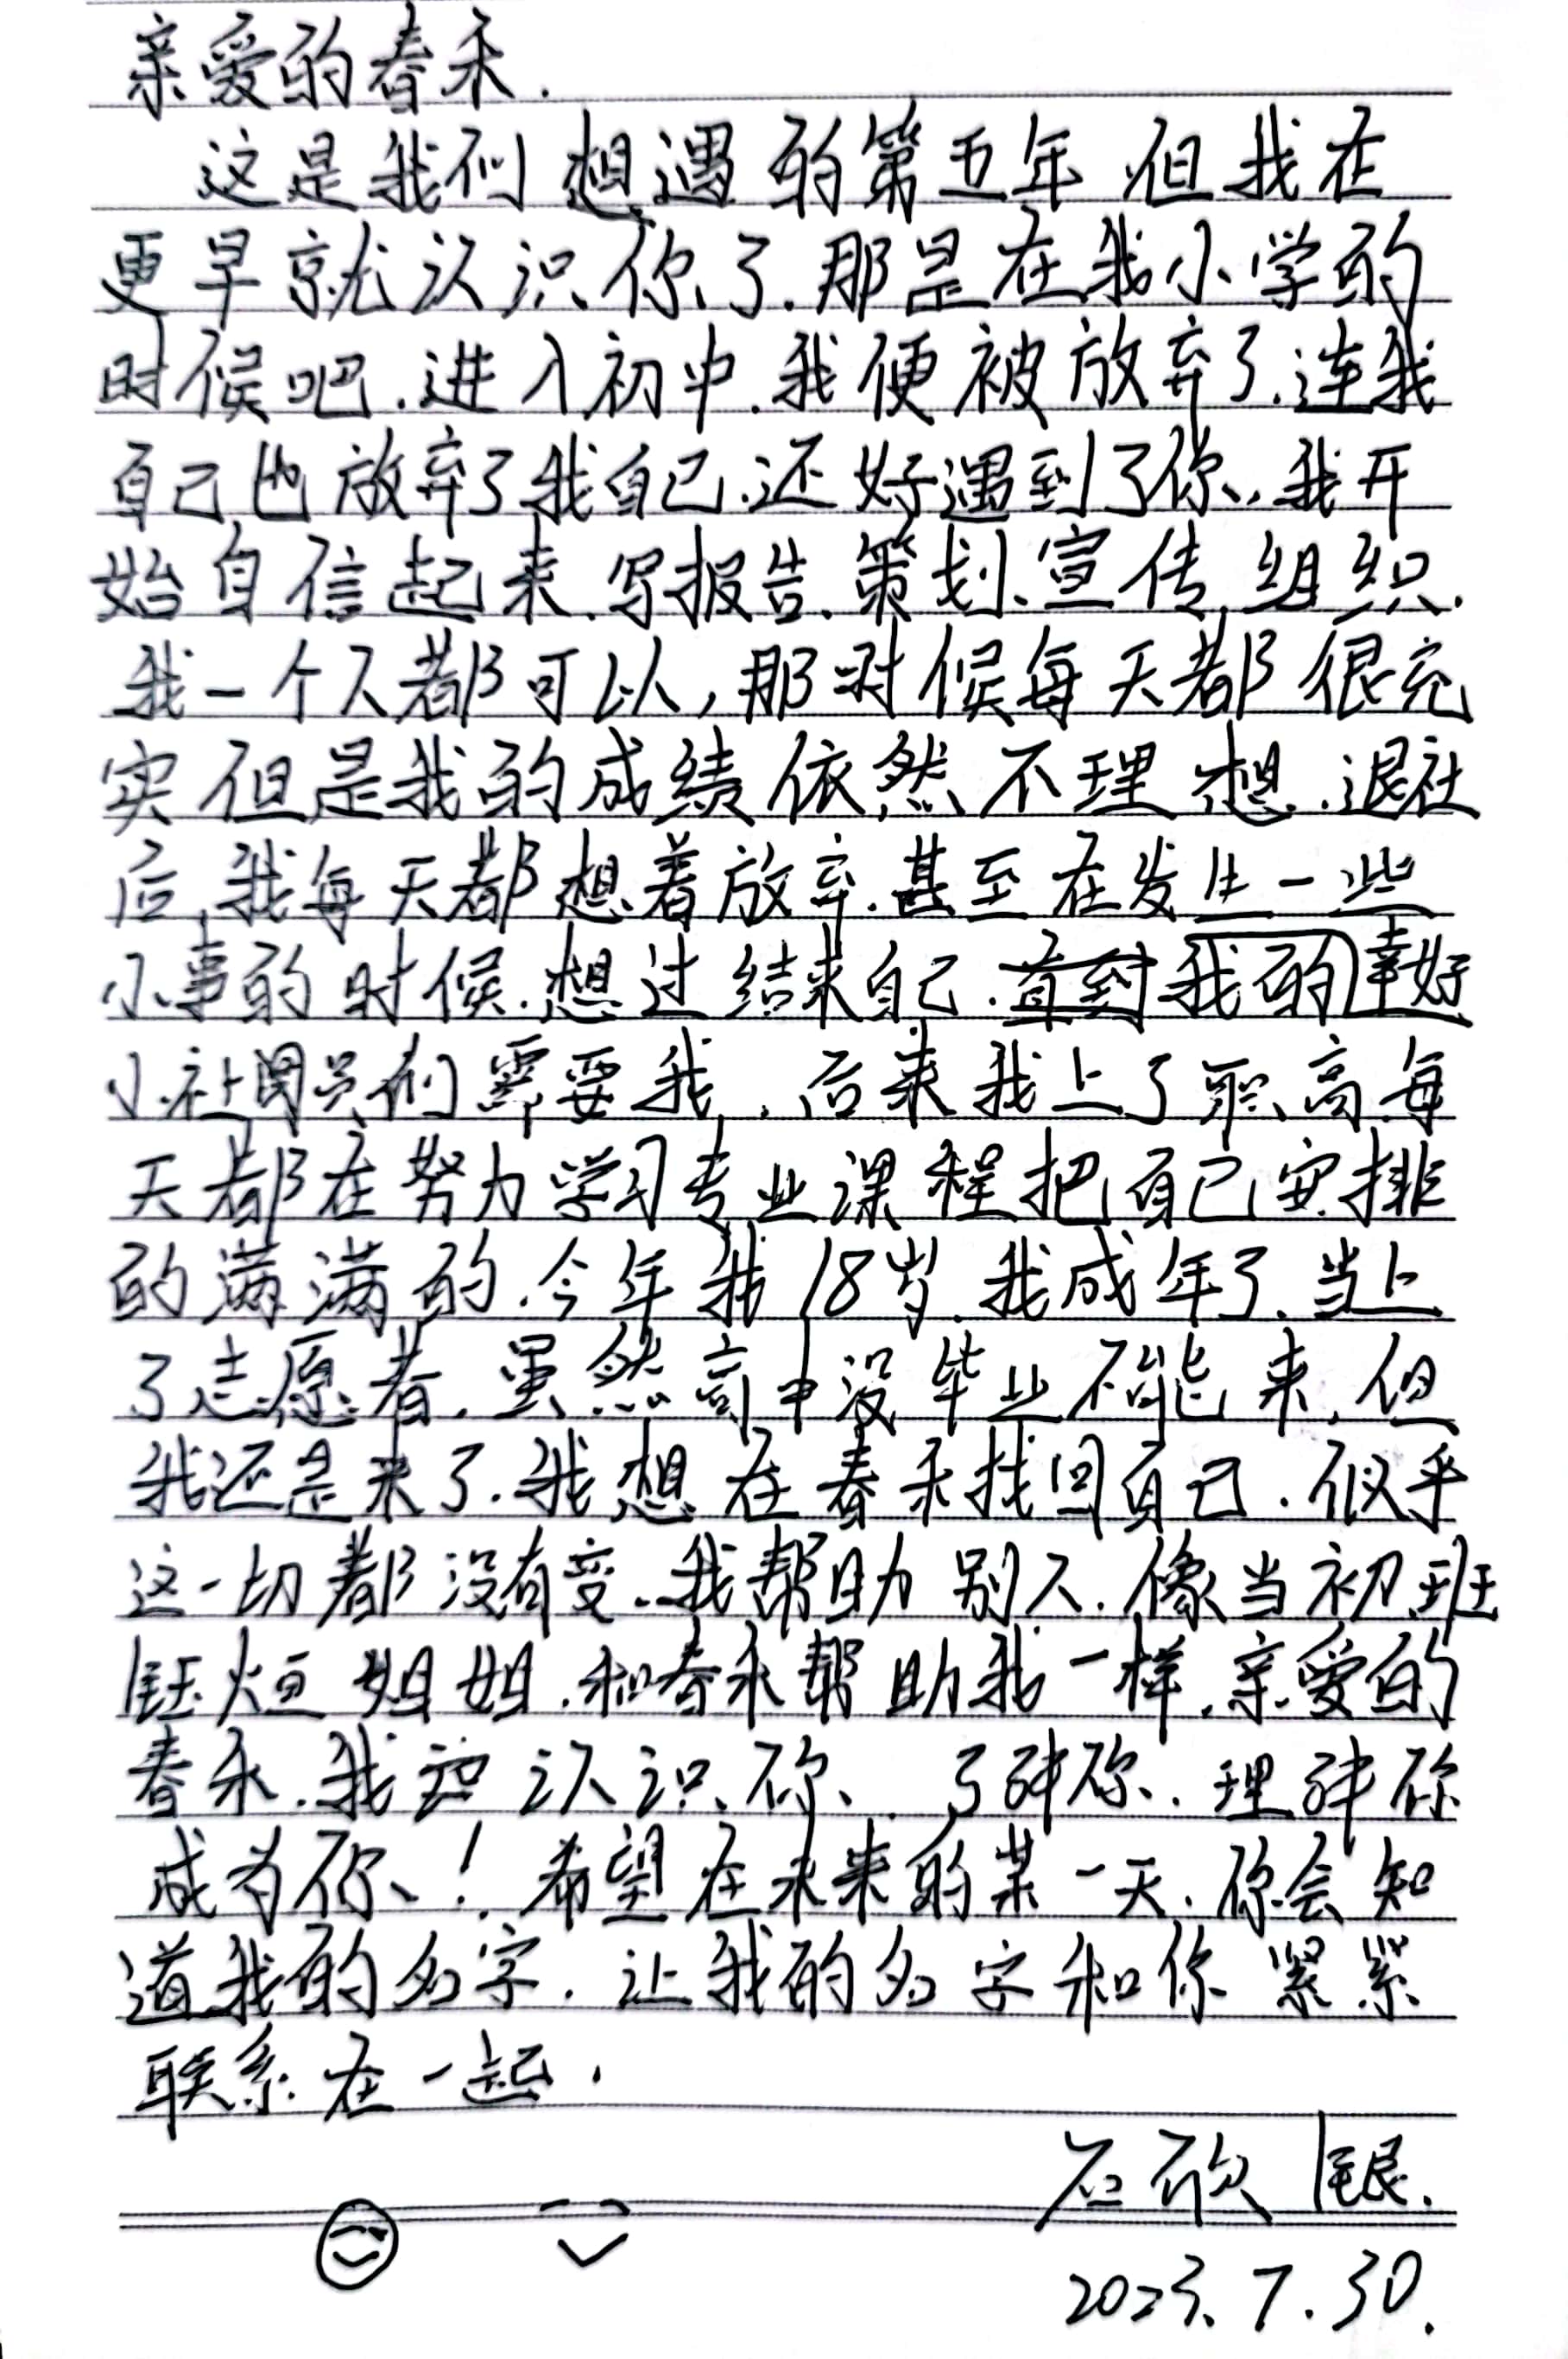 亲爱的春禾.
这是我们想遇的第五年 但我在
更早就认识你了.那是在我小学的
时候吧.进入初中.我便被放弃了.连我
自己也放弃了我自己.还好遇到了你.我开
始自信起来.写报告.策划.宣传.组织.
我一个人都可以,那时候每天都很充
实但是我的成绩依然不理想.退社
后,我每天都想着放弃.甚至在发生一些
小事的时候.想过结束自己.直到我的幸好
小社团员们需要我.后来我上了职高每
天都在努力学习专业课程把自己安排
的满满的.今年我18岁.我成年了.当上
了志愿者.虽然高中没毕业不能来,但
我还是来了.我想在春禾找回自己.似乎
这一切都没有变.我帮助别人.像当初班
钰烜姐姐.和春禾帮助我一样.亲爱的
春禾.我认识你.了解你.理解你
成为你!希望在未来的某一天.你会知
道我的名字.让我的名字和你紧紧
联系在一起.
石欣银.
2023.7.30.